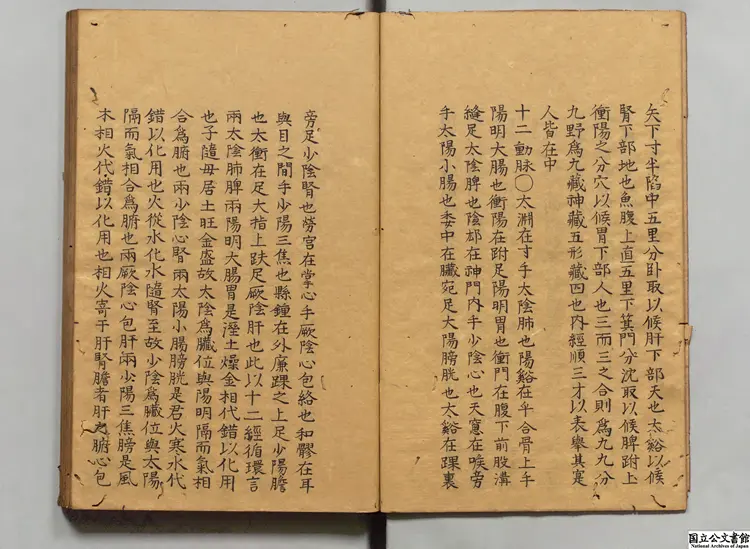 矢下寸半陷中五里分卧取以候肝下部天也太谿以候
腎下部地也魚腹上直五里下箕門分沈取以候脾跗上
衝陽之分穴以候胃下部人也三而三之合則為九九分
九野為九藏神藏五形藏四也内經順三才以表舉其寔
人皆在中
十二動脉〇太淵在寸手太陰肺也陽谿在𠂇合骨上手
陽明大腸也衝陽在跗足陽明胃也衝門在腹下前股溝
縫足太陰脾也陰郄在神門内手少陰心也天窻在喉旁
手太陽小腸也委中在臗宛足大陽膀胱也太谿在踝裏
旁足少陰腎也勞宮在掌心手厥陰心包絡也和髎在耳
與目之間手少陽三焦也縣鍾在外廉踝之上足少陽膽
也太衝在足大指上趺足厥陰肝也此以十二經循環言
兩太陰肺脾兩陽明大腸胃是溼土燥金相代錯以化用
也子隨母居土旺金盛故太陰為臟位與陽明隔而氣相
合為腑也兩少陰心腎兩太陽小腸膀胱是君火寒水代
錯以化用也火從水化水隨腎至故少陰為臟位與太陽
隔而氣相合為腑也兩厥陰心包肝兩少陽三焦膀是風
木相火代錯以化用也相火寄于肝腎膽者肝之腑心包
国立公文書館
National Archives of Japan